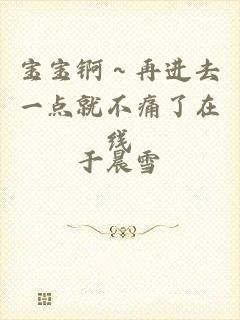 宝宝锕~再进去
一点就不痛了在
线
于晨雪